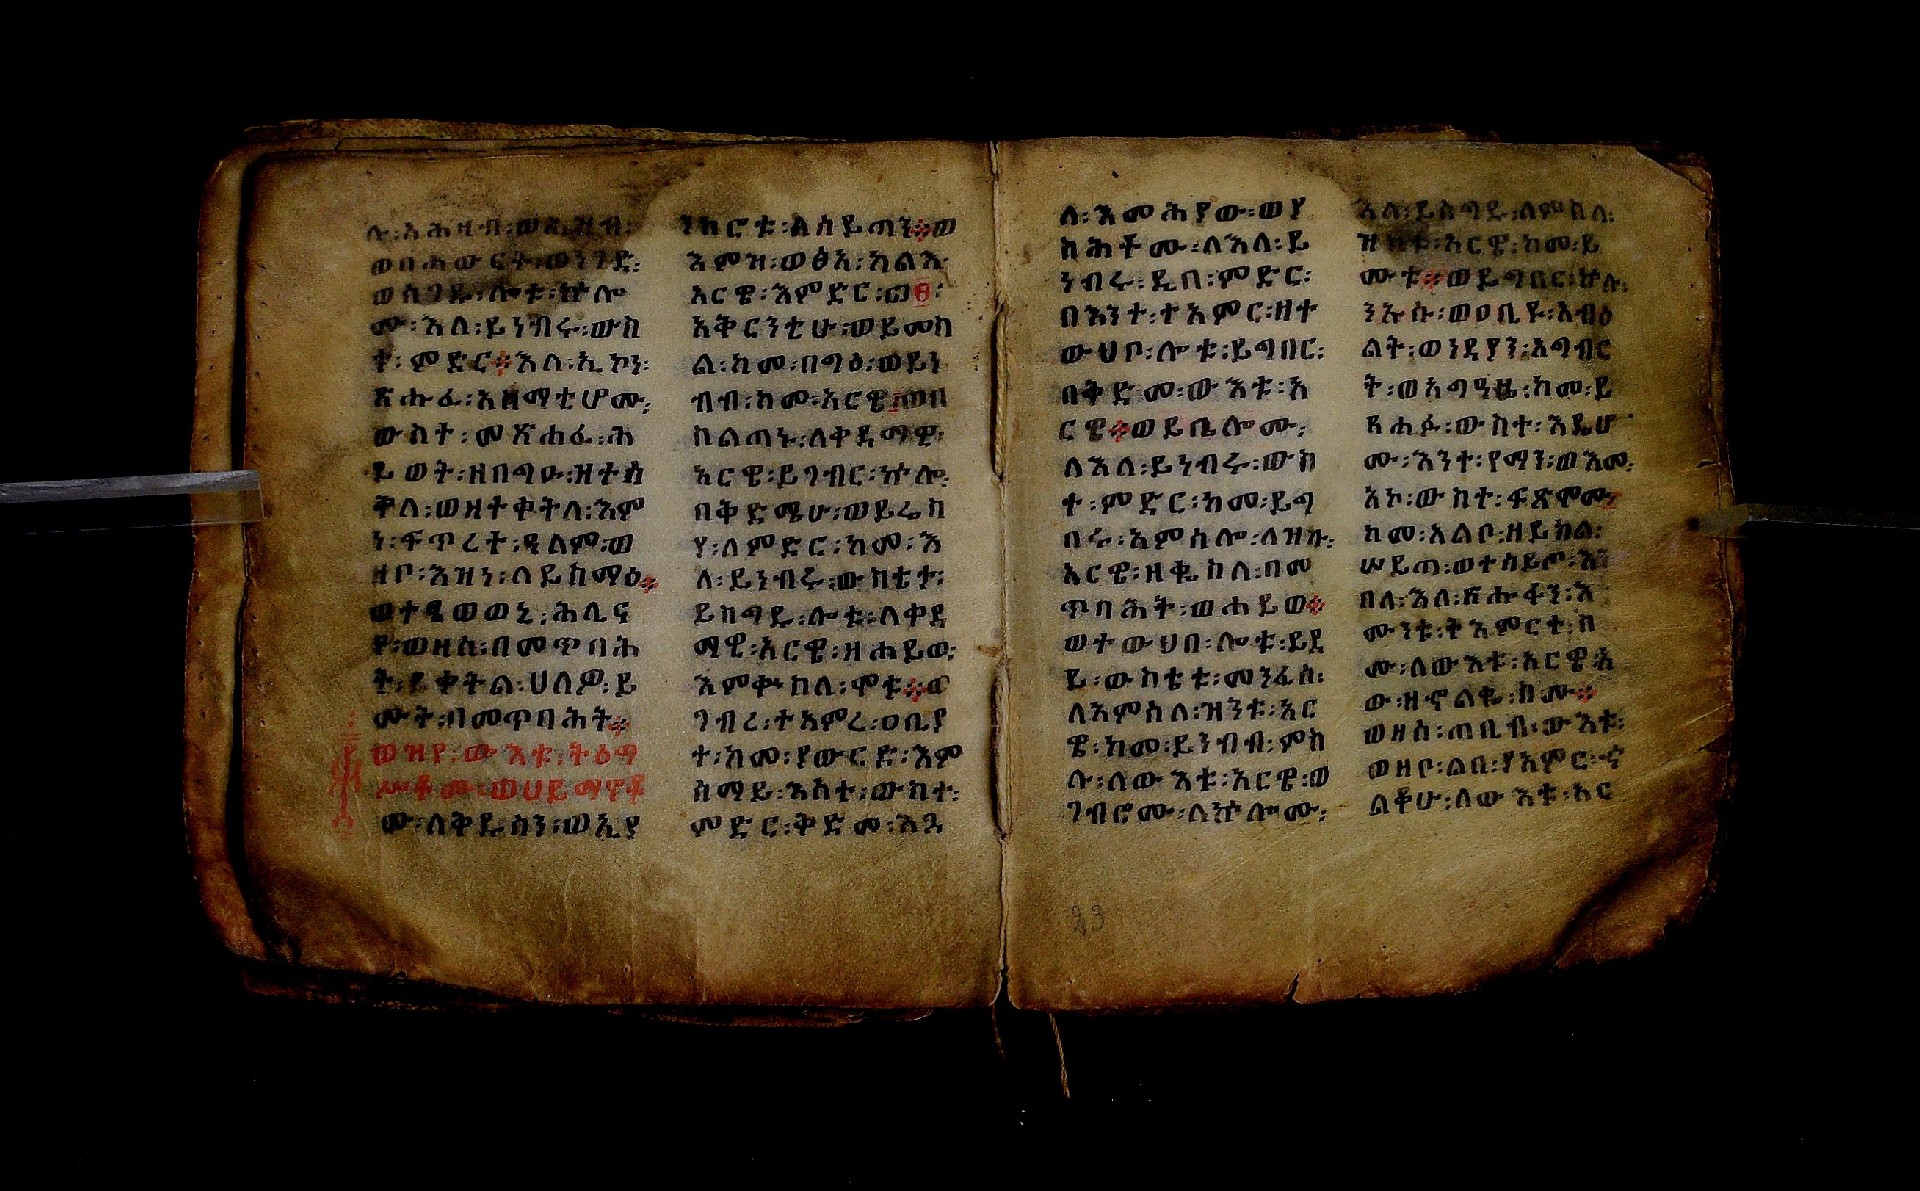 ሉ፡አሕዛብ፡ወሕዝብ፡
ወበሐውርት፡ወነገድ፡
ወሰገዱ፡ሎቱ፡ኵሎ
ሙ፡እለ፡ይነብሩ፡ውስ
ተ፡ምድር፨እለ፡ኢኮነ፡
ጽሑፈ፡አስማቲሆሙ፡
ውስተ፡መጽሐፈ፡ሕ
ይወት፡ዘበግዑ፡ዝተሰ
ቅለ፡ወዘተቀትለ፡እም
ነ፡ፍጥረተ፡ዓልም፡ወ
ዘቦ፡እዝነ፡ለይስማዕ፨
ወተፄወወኒ፡ሕሊና
የ፡ወዘሰ፡በመጥባሕ
ት፡ይቀትል፡ሀለዎ፡ይ
ሙት፡በመጥባሕት፨
ወዝየ፡ውእቱ፡ትዕግ
ሥቶሙ፡ወሀይማኖቶ
ሙ፡ለቅዱሳን፡ወኢያ
ንከሮቱ፡ለሰይጣን፨ወ
እምዝ፡ወፅአ፡ካልእ
አርዌ፡እምድር፡፪፡
አቅርንቲሁ፡ወይመስ
ል፡ከመ፡በግዕ፡ወይነ
ብብ፡ከመ፡አርዌ፡ወበ
ስልጣኑ፡ለቀዳማዊ፡
አርዌ፡ይገብር፡ኵሎ፡
በቅድሜሁ፡ወይሬስ
ያ፡ለምድር፡ከመ፡እ
ለ፡ይነብሩ፡ውስቴታ፡
ይስግዱ፡ሎቱ፡ለቀዳ
ማዊ፡አርዌ፡ዘሐይወ፡
እምቍስለ፡ሞቱ፨ወ
ገብረ፡ተአምረ፡ዐቢያ
ተ፡ከመ፡ያውርድ፡እም
ሰማይ፡እሳተ፡ውስተ፡
ምድር፡ቅድመ፡እጓ
ለ፡እመሕያው፡ወያ
ስሕቶሙ፡ለእለ፡ይ
ነብሩ፡ዲበ፡ምድር፡
በእንተ፡ተአምር፡ዘተ
ውህቦ፡ሎቱ፡ይግበር፡
በቅድመ፡ውእቱ፡አ
ርዌ፨ወይቤሎሙ፡
ለእለ፡ይነብሩ፡ውስ
ተ፡ምድር፡ከመ፡ይግ
በሩ፡አምሳሎ፡ለዝኩ፡
አርዌ፡ዘቈስለ፡በመ
ጥባሕት፡ወሐይወ፨
ወተውህበ፡ሎቱ፡ይደ
ይ፡ውስቴቱ፡መንፈስ፡
ለአምሳለ፡ዝንቱ፡አር
ዌ፡ከመ፡ይንብብ፡ምስ
ሉ፡ለውእቱ፡አርዌ፡ወ
ገብሮሙ፡ለኵሎሙ፡
እለ፡ይሰግዱ፡ለምስለ፡
ዝንቱ፡አርዌ፡ከመ፡ይ
ሙቱ፨ወይግበር፡ኵሉ፡
ንኡሱ፡ወዐቢዩ፡አብዕ
ልት፡ወነዳያን፡አግብር
ት፡ወአግዓዜ፡ከመ፡ይ
ጸሐፉ፡ውስተ፡እዴሆ
ሙ፡እንተ፡የማን፡ወእመ፡
አኮ፡ውስተ፡ፍጽሞሙ፡
ከመ፡አልቦ፡ዘይክል፡
ሠይጠ፡ወተሳይጦ፡እን
በለ፡እለ፡ጽሑፋን፡እ
ሙንቱ፡ትእምርተ፡ስ
ሙ፡ለውእቱ፡አርዌ፡አ
ው፡ዘኆልቈ፡ስሙ፨
ወዘሰ፡ጠቢብ፡ውእቱ፡
ወዘቦ፡ልበ፡ያአምር፡ኆ
ልቆሁ፡ለውእቱ፡አር
23